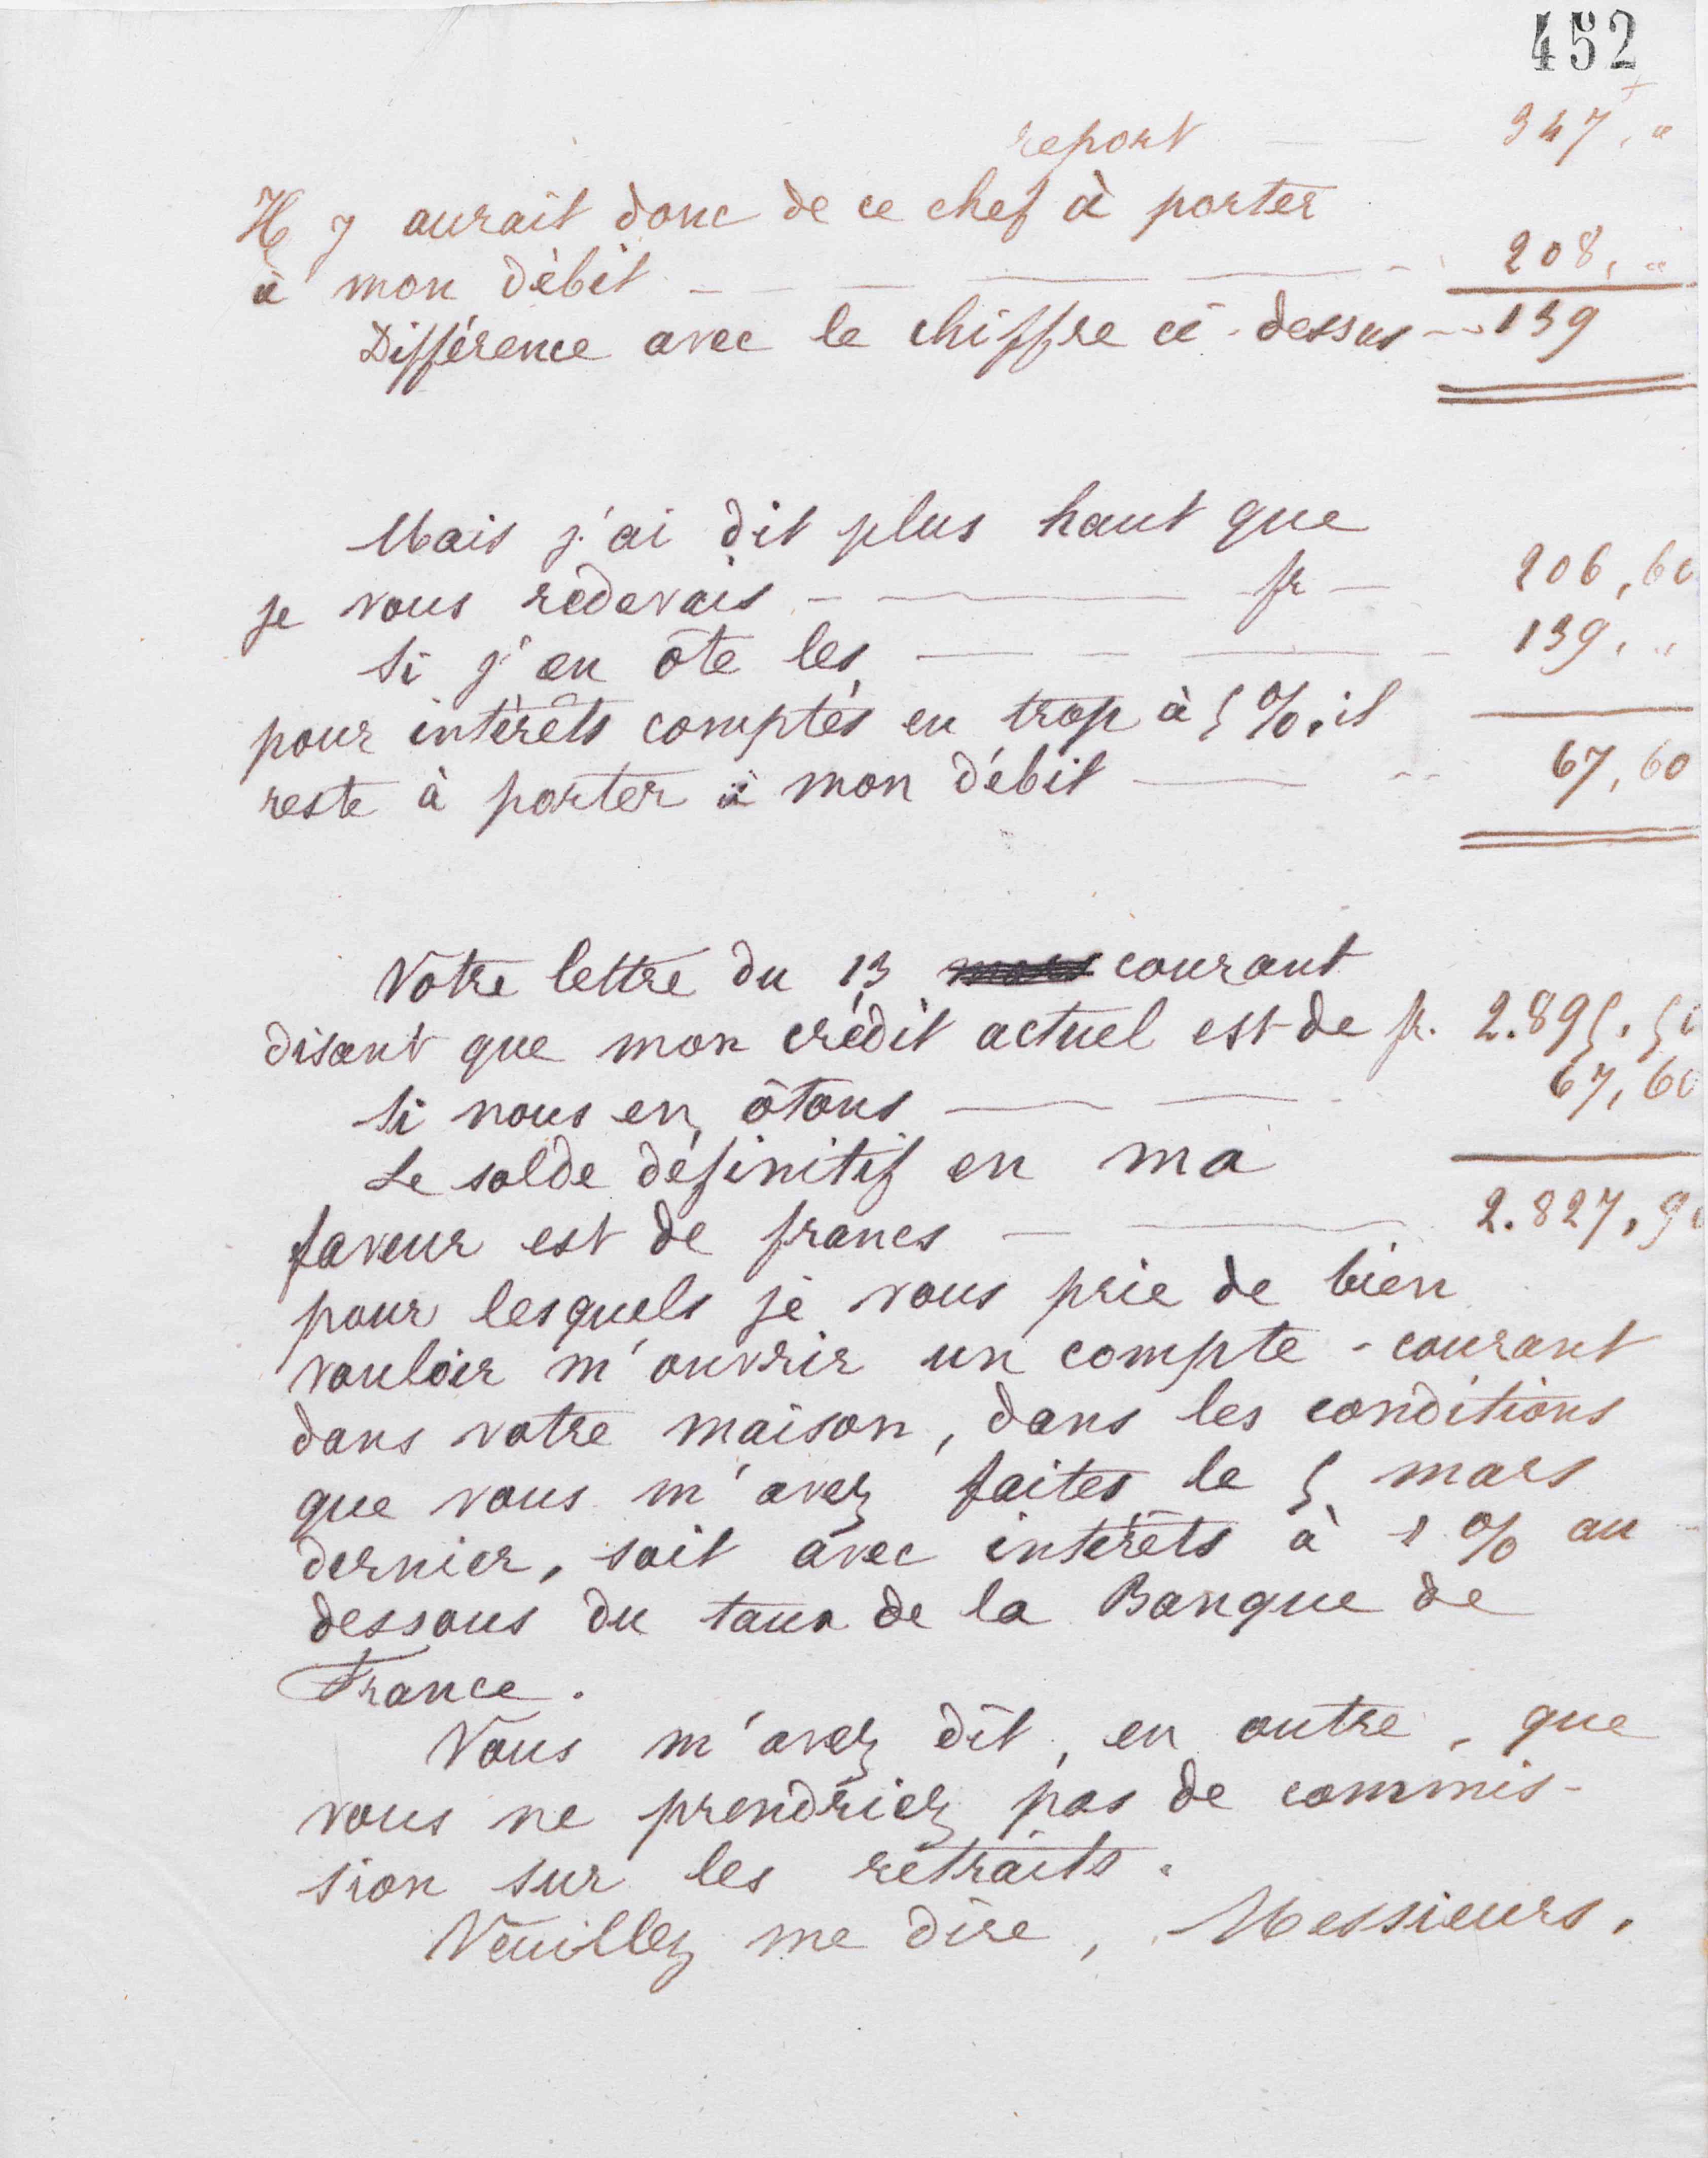 452
report — — 347, "
Il y aurait donc de ce chef à porter
à mon débit — — — — — 208, "
Différence avec le chiffre ci-dessus — 139
Mais j'ai dit plus haut que
je vous redevais — — fr — 206,60
Si j'en ôte les — — — — 139, "
pour intérêts comptés en trop à 5 %, il
reste à porter à mon débit — — 67,60
Votre lettre du 13 courant
disant que mon crédit actuel est de fr. 2.895,50
Si nous en ôtons — — 67,60
Le solde définitif en ma
faveur est de francs — — 2.827,90
pour lesquels je vous prie de bien
vouloir m'ouvrir un compte-courant
dans votre maison, dans les conditions
que vous m'avez faites le 5 mars
dernier, soit avec intérêts à 1 % au
dessous du taux de la Banque de
France.
Vous m'avez dit, en outre, que
vous ne prendriez pas de commis-
sion sur les retraits.
Veuillez me dire, Messieurs,